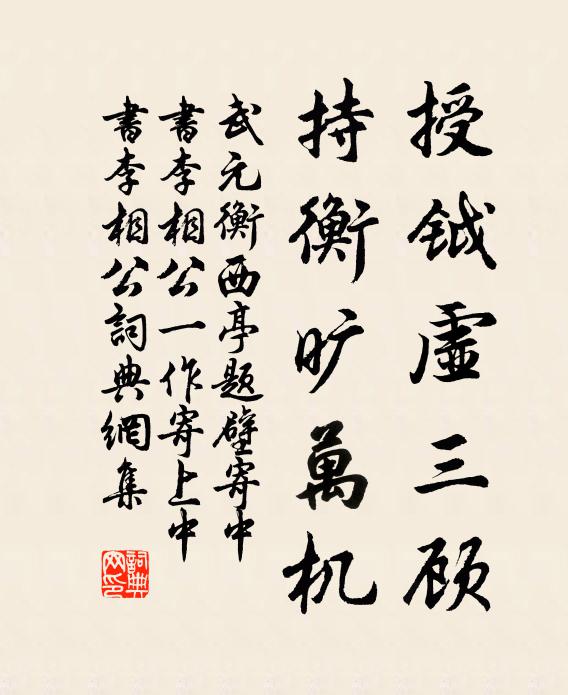 授钺虚三顾
持衡旷萬机
武元衡西亭题壁寄中
書李相公一作寄上中
書李相公詞典網集
詞典网印